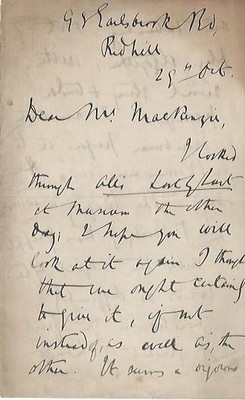 98 Earlsbrook Rd,
Redhill
29th Oct.
Dear Mr MacKenzie,
I looked
through
at Museum the other
Day, I hope you will
look at it again. I think
that we ought certainly
to give it, if not
instead, as well as, the
other. It seems a vigorous